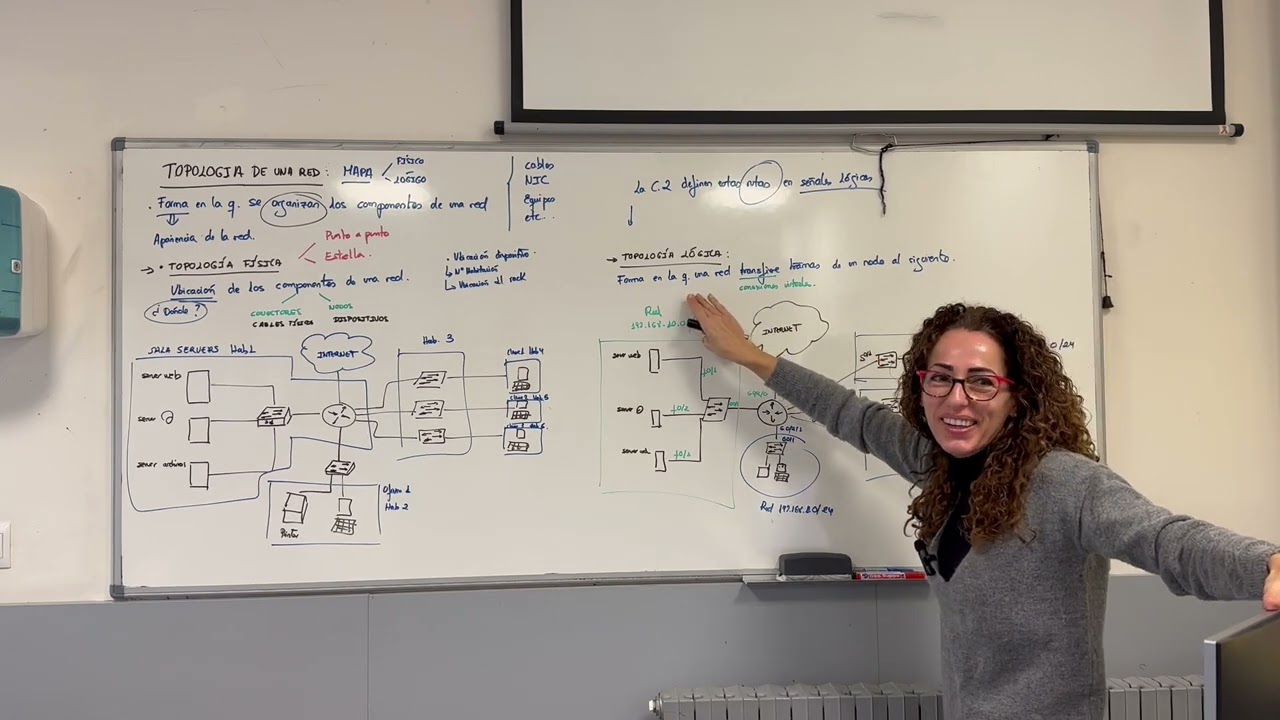 TOPOLOGIA DE UNA RED: MAPA
FÍSICO
LÓGICO
. Forma en la q. se organizan los componentes de una red
Apariencia de la red.
cables
NIC
Equipos
etc..
→ • TOPOLOGÍA FÍSICA
Punto a punto
Estella.
Ubicación de los componentes de una red.
¿Dónde?
CONECTORES
CABLES FÍSICA
NODOS
DISPOSITIVOS
• Ubicación dispositivo.
↳ Nº Habitación
↳ Ubicación el rack
SALA SERVERS Hab1
server web
server @
server archivos
INTERNET
Hab. 3
Oficina 1
Hab 2
la C.2 definen estas rutas en señales lógicas
→ TOPOLOGÍA LÓGICA:
Forma en la q. una red transfiere tramas de un nodo al siguiente.
conexiones virtuales.
Red
192.168.10.0
INTERNET
0/24
server web
f0/1
server @
f0/2
f0/3
Red 192.168.2.0/24